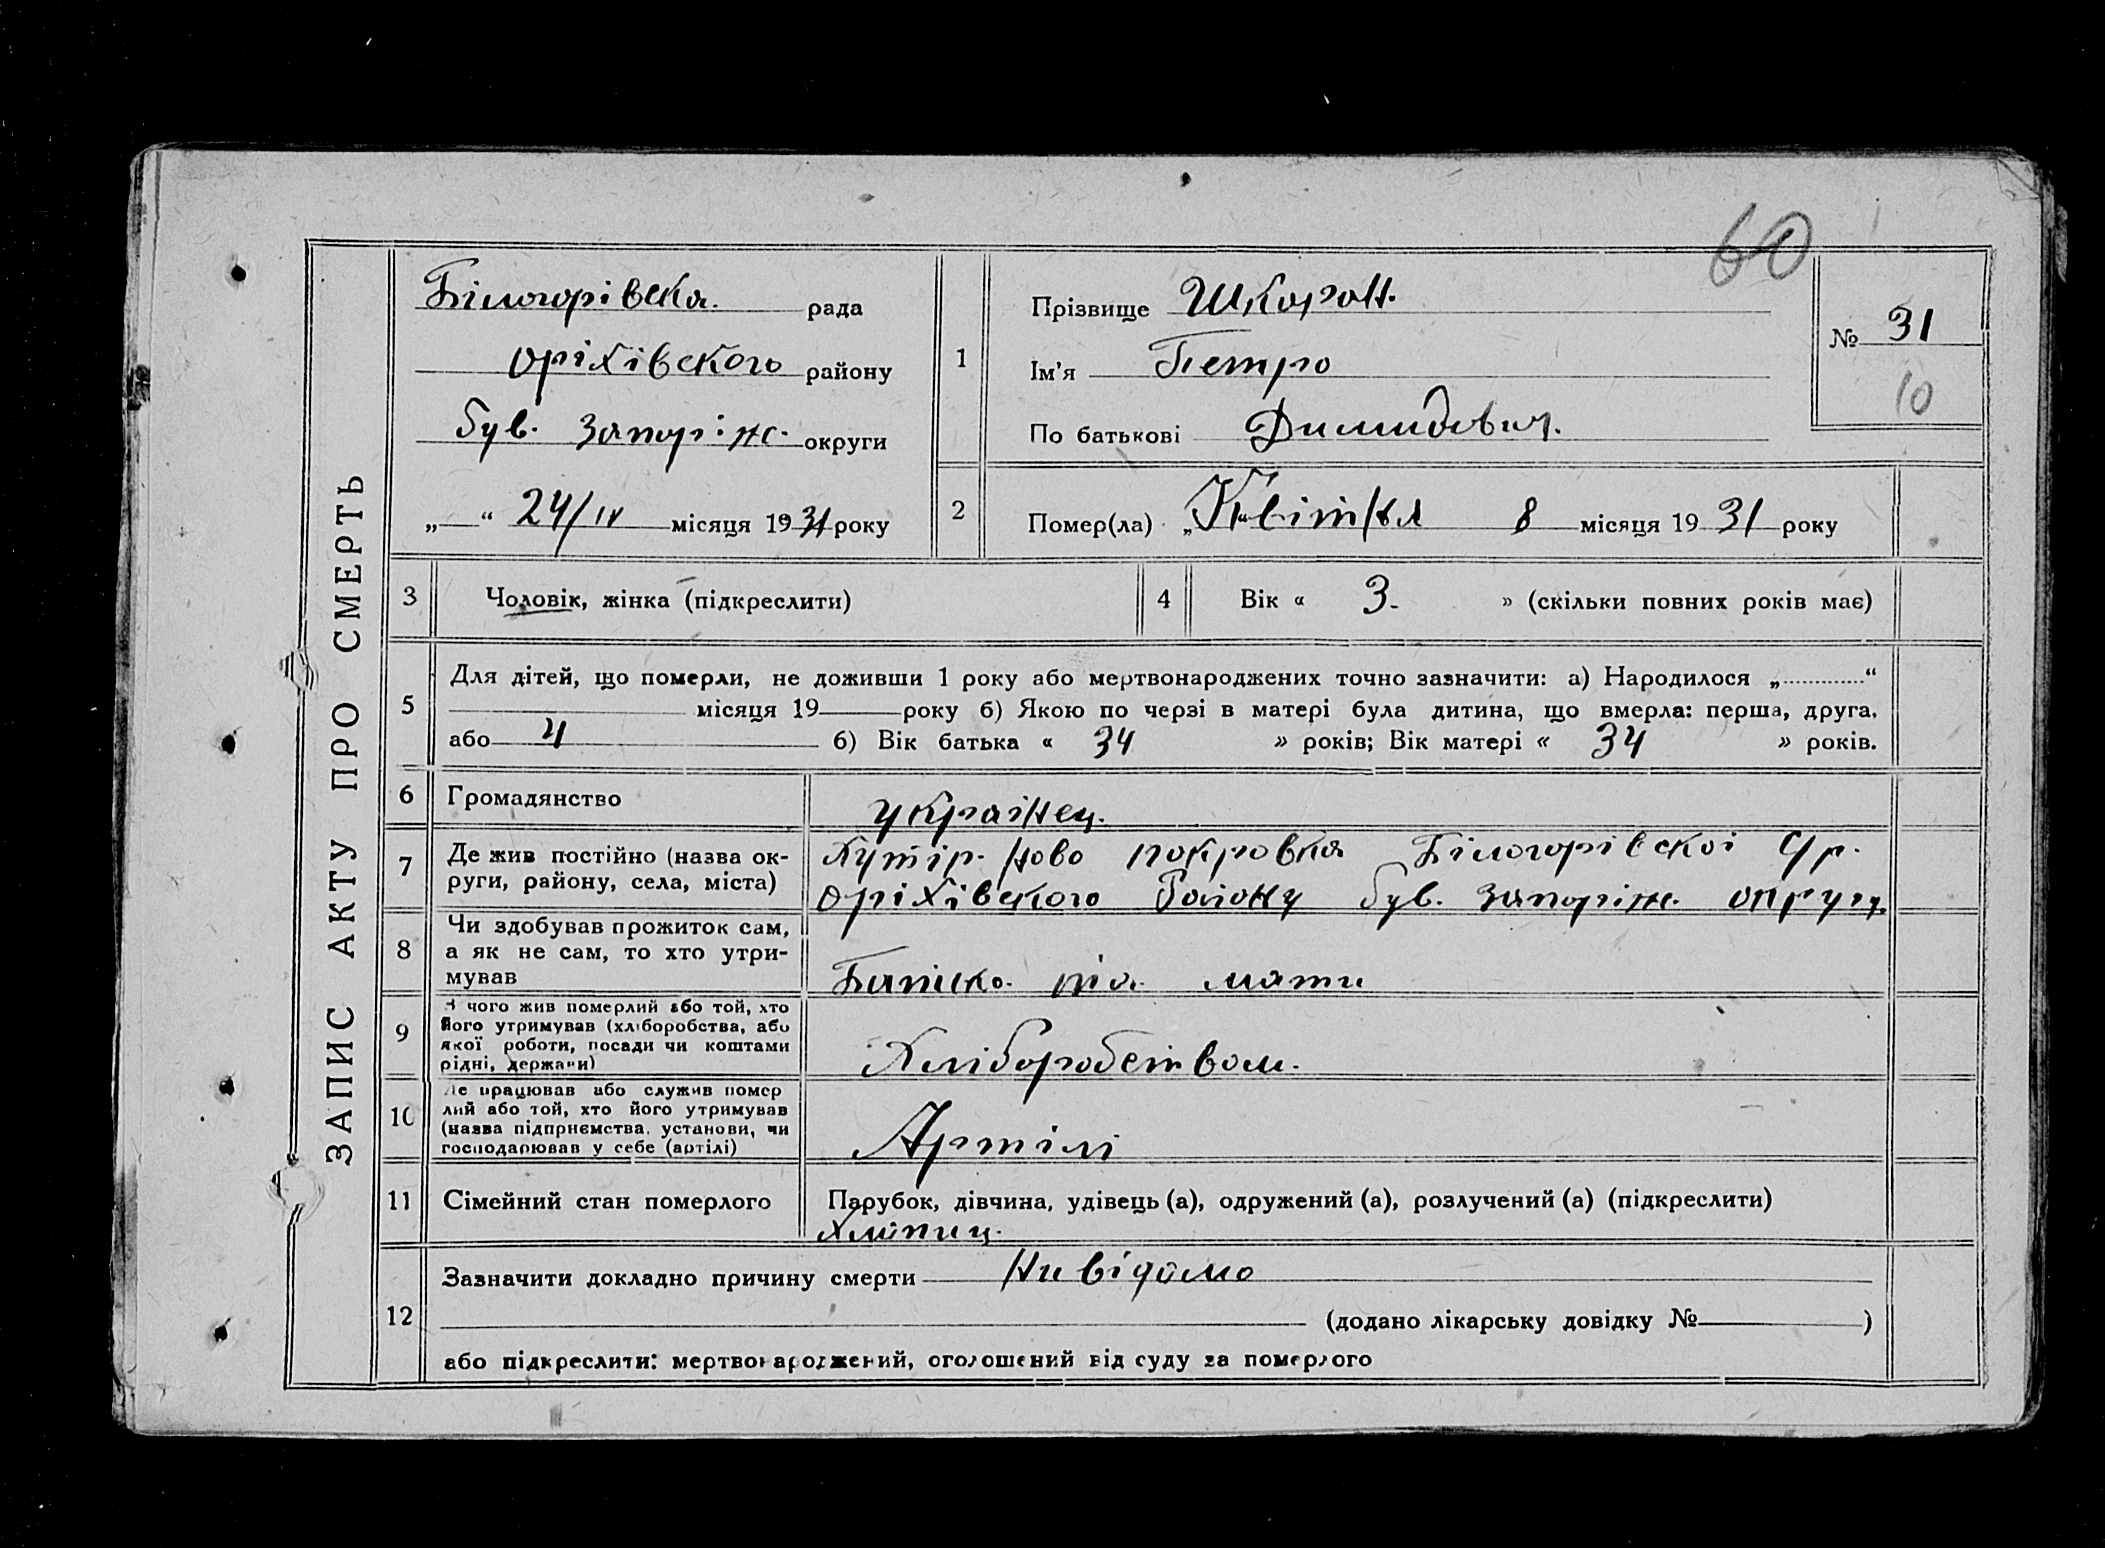 60
ЗАПИС АКТУ ПРО СМЕРТЬ
Білогорівська. рада
Оріхівского району
був. Запоріж. округи
„ “ 24/IV місяця 1931 року
1
Прізвище
Ім’я Петро
По батькові Димидович.
№ 31
10
2
Помер(ла) „Квітня 8 місяця 1931 року
3
Чоловік, жінка (підкреслити)
4
Вік « 3. » (скільки повних років має)
5
Для дітей, що померли, не доживши 1 року або мертвонароджених точно зазначити: а) Народилося „ “
місяця 19 року б) Якою по черзі в матері була дитина, що вмерла: перша, друга,
або 4 б) Вік батька « 34 » років; Вік матері « 34 » років.
6
Громадянство
українец.
7
Де жив постійно (назва ок-
руги, району, села, міста)
Хутір. Ново покровка Білогорівскоі С/р.
Оріхівского Району був. Запоріж. округи.
8
Чи здобував прожиток сам,
а як не сам, то хто утри-
мував
Батько. та мати
9
З чого жив померлий або той, хто
його утримував (хліборобства, або
якої роботи, посади чи коштами
рідні, держави)
Хліборобством.
10
Де працював або служив помер
лий або той, хто його утримував
(назва підприємства, установи, чи
господарював у себе (артілі)
Артілі
11
Сімейний стан померлого
Парубок, дівчина, удівець (а), одружений (а), розлучений (а) (підкреслити)
12
Зазначити докладно причину смерти Ни відомо
(додано лікарську довідку № )
або підкреслити: мертвонароджений, оголошений від суду за померлого